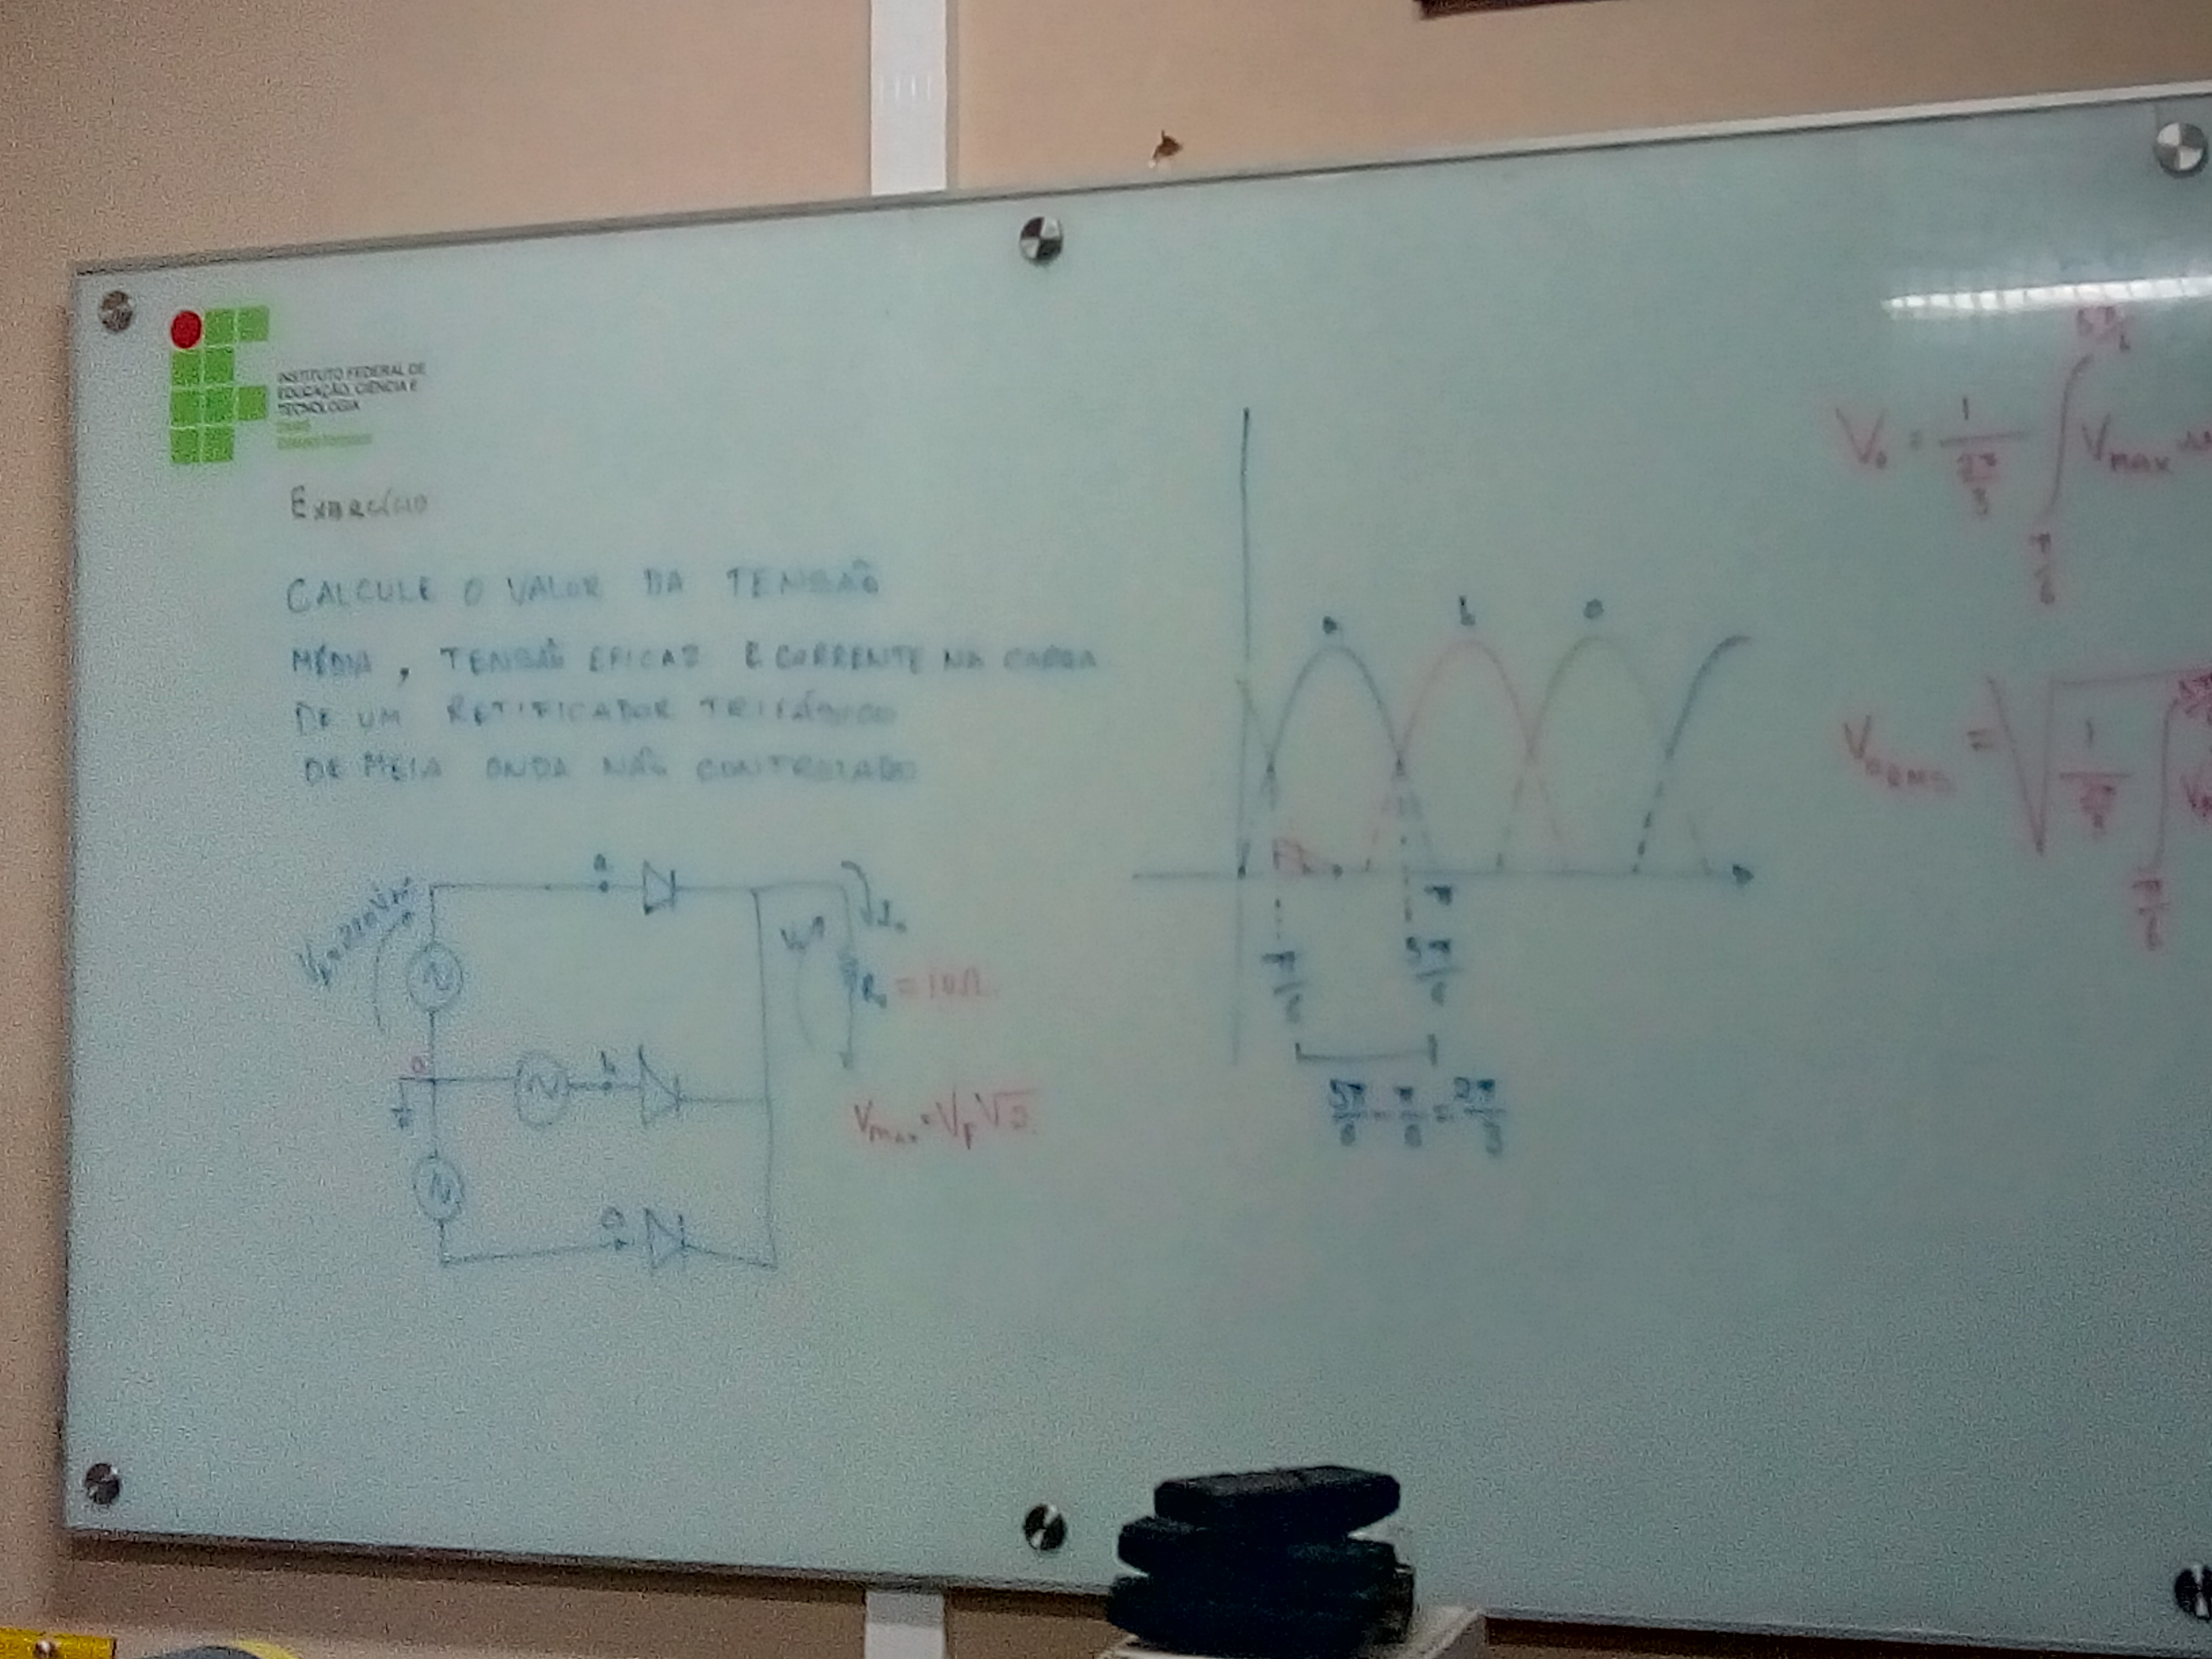 INSTITUTO FEDERAL DE
EDUCAÇÃO, CIÊNCIA E
TECNOLOGIA
EXERCÍCIO
CALCULE O VALOR DA TENSÃO
MÉDIA, TENSÃO EFICAZ E CORRENTE NA CARGA
DE UM RETIFICADOR TRIFÁSICO
DE MEIA ONDA NÃO CONTROLADO
a
b
Io
Vo
Ro = 10Ω
Vmax = Vp√2
a b c
π
π/6
5π/6
5π/6 - π/6 = 2π/3
Vo = 1/(2π/3) ∫ π/6 5π/6 VMAX
VoRMS = √ 1/(2π/3) ∫ π/6